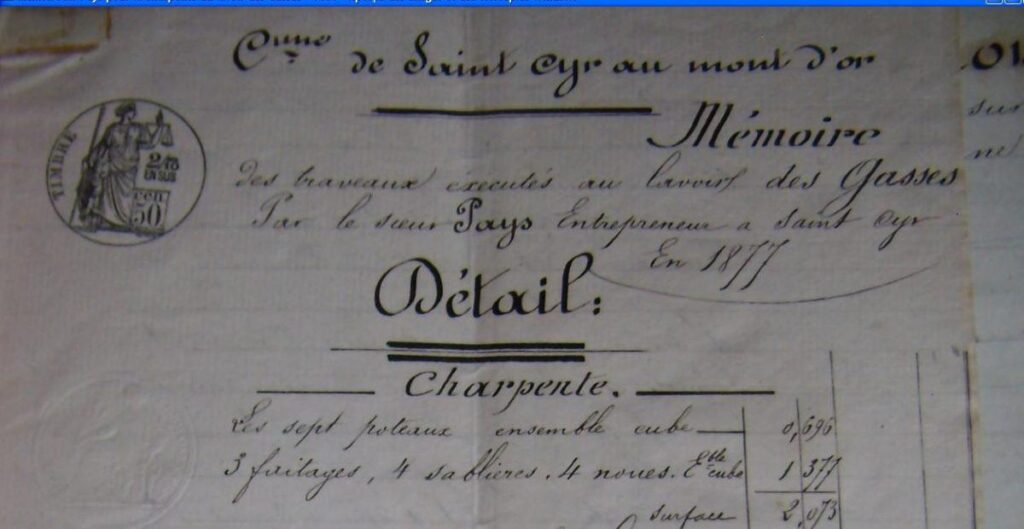 Cune de Saint Cyr au mont d'or
Mémoire
des travaux exécutés au lavoir des Gasses
Par le sieur Pays Entrepreneur a Saint Cyr
En 1877
Détail:
Charpente.
Les sept poteaux ensemble cube 0,696
3 faitages, 4 sablières. 4 noues. Eble cube 1 377
2,073
surface
TIMBRE
2/10
EN SUS
50
sur
ne